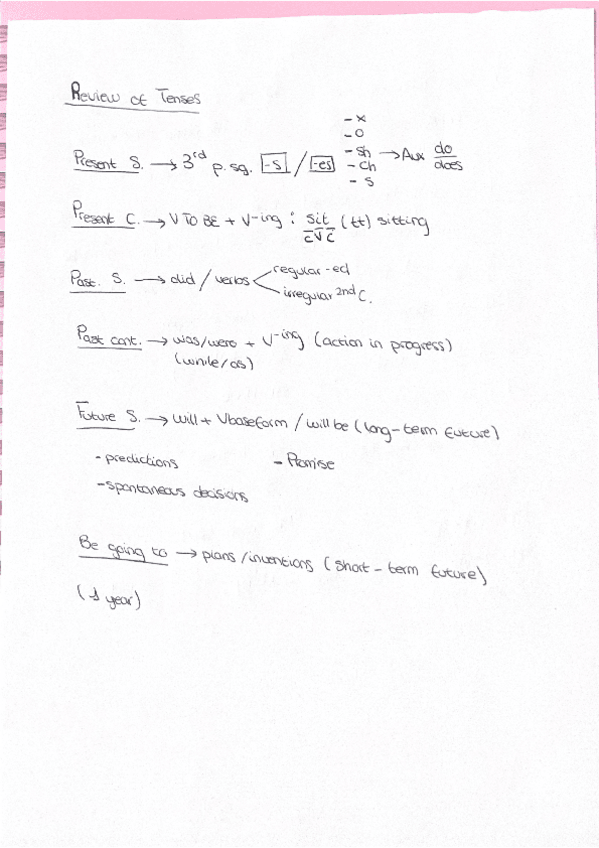 Review of Tenses
- x
- o
Present S. → 3rd p. sg. -s / -es - sh → Aux do
does
- ch
- s
Present C. → V TO BE + V-ing : sit (tt) sitting
CVC
Past. S. → did / verbs regular -ed
irregular 2nd C.
Past cont. → was/were + V-ing (action in progress)
(while/as)
Future S. → will + Vbaseform / will be (long-term future)
- predictions - Promise
- spontaneous decisions
Be going to → plans / inventions (short-term future)
(1 year)